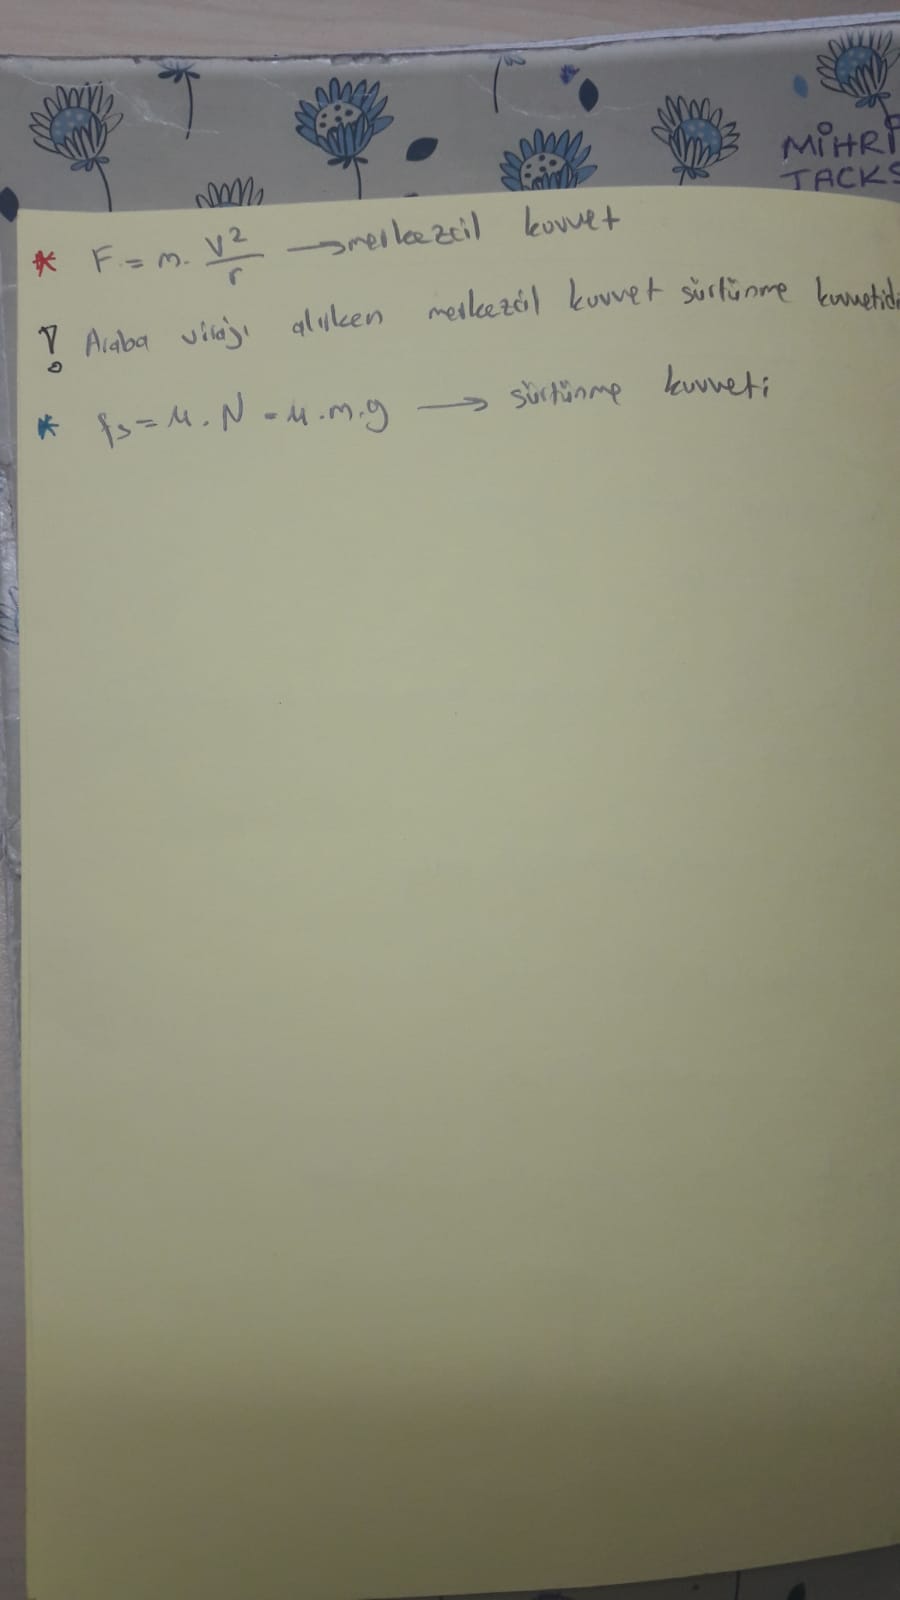 MİHRİ
JACKS
* F = m. V²/r → merkezcil kuvvet
! Araba virajı alırken merkezcil kuvvet sürtünme kuvvetidi
* fs = μ . N = μ . m . g → sürtünme kuvveti